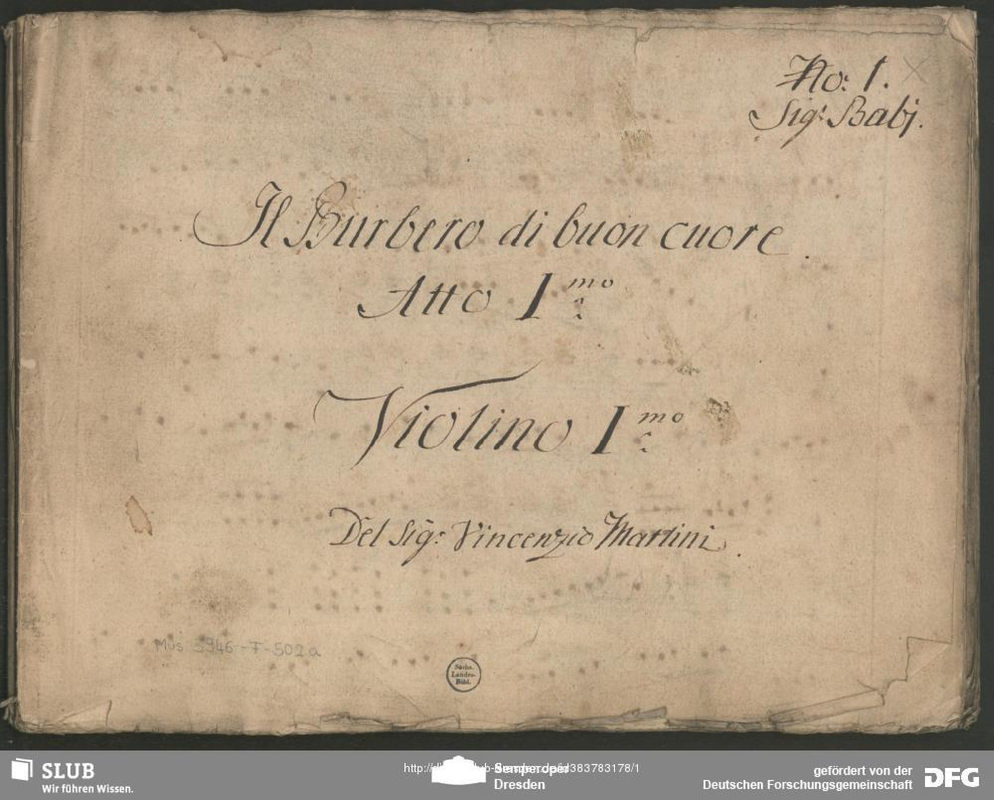 No: 1.
Sigr Babj.
Il Burbero di buon cuore.
Atto Imo
Violino Imo
Del Sigr: Vincenzio Martini.
Mus 3946-F-502a
Sächs.
Landes-
Bibl.
SLUB
Wir führen Wissen.
Semperoper
Dresden
gefördert von der
Deutschen Forschungsgemeinschaft
DFG